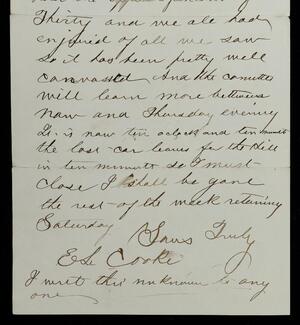 Thirty and we all had
enjoined of all we saw
so it has been pretty well
canvassed And the Comittee
will learn more between
now and Thursday evening
It is now ten oclock and ten
the last car leaves for the Hill
in ten minutes so I must
close I shall be gone
the rest of the week returning
Saturday
Yours Truly
E S Cooke
I write this unknown to any
one